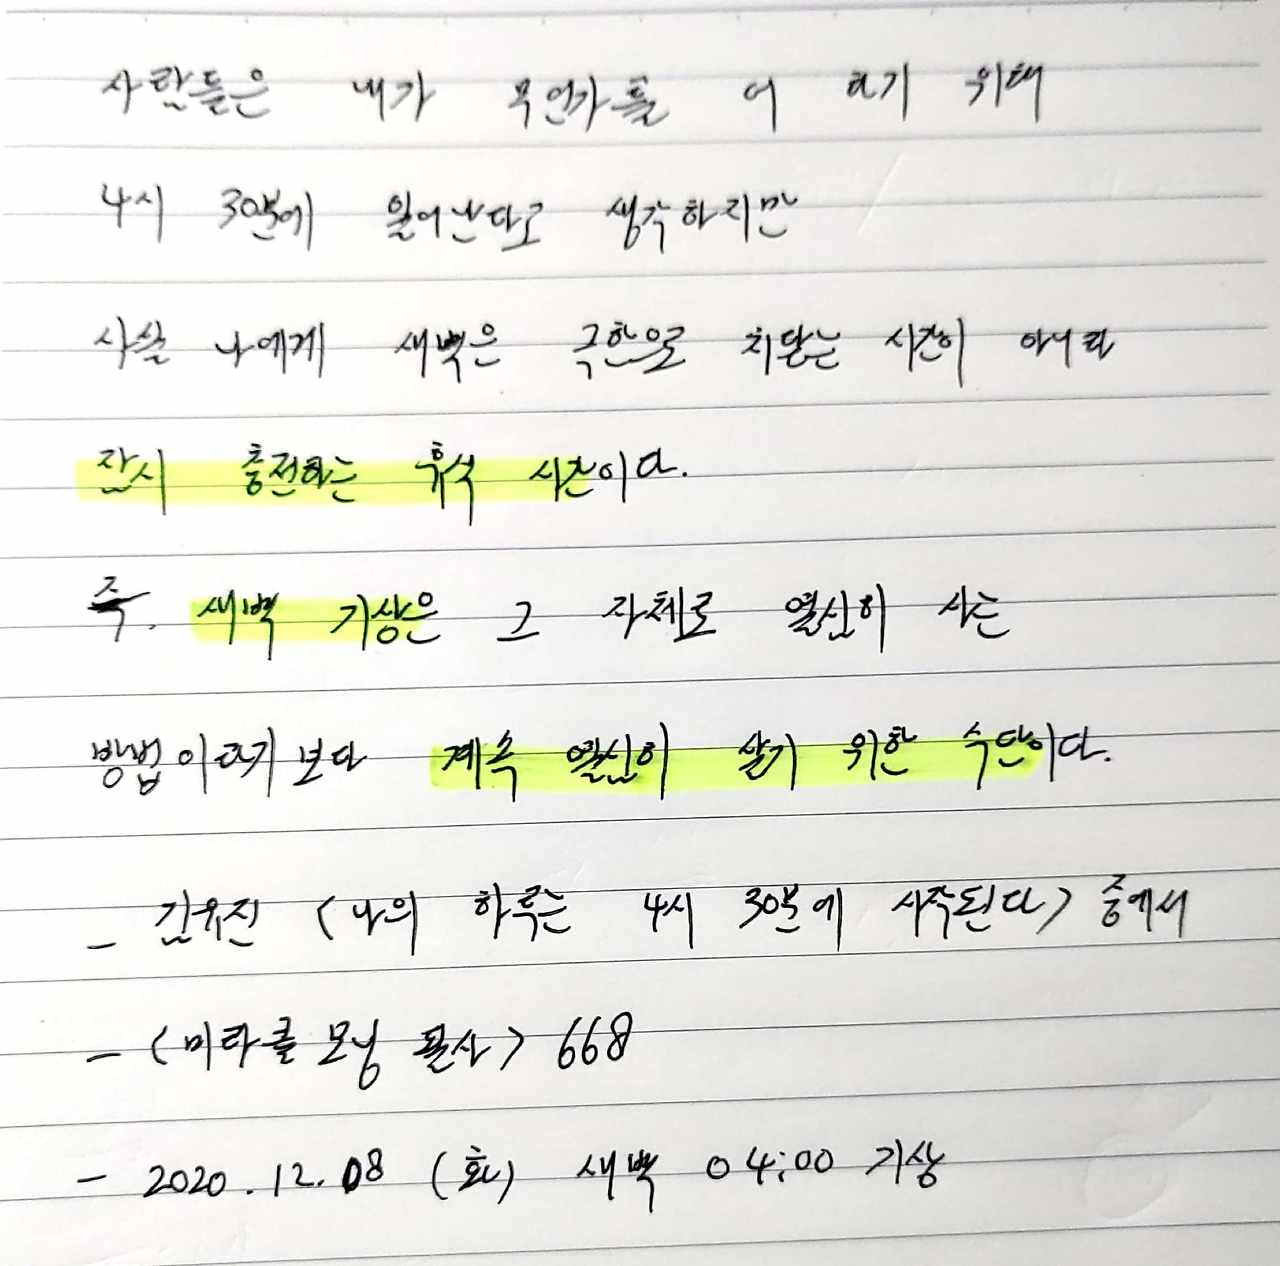 사람들은 내가 무언가를 더 하기 위해
4시 30분에 일어난다고 생각하지만
사실 나에게 새벽은 극한으로 치닫는 시간이 아니라
잠시 충전하는 휴식 시간이다.
즉, 새벽 기상은 그 자체로 열심히 사는
방법이라기 보다 계속 열심히 살기 위한 수단이다.
- 김유진 <나의 하루는 4시 30분에 시작된다> 중에서
- <미라클 모닝 필사> 668
- 2020.12.08 (화) 새벽 04:00 기상